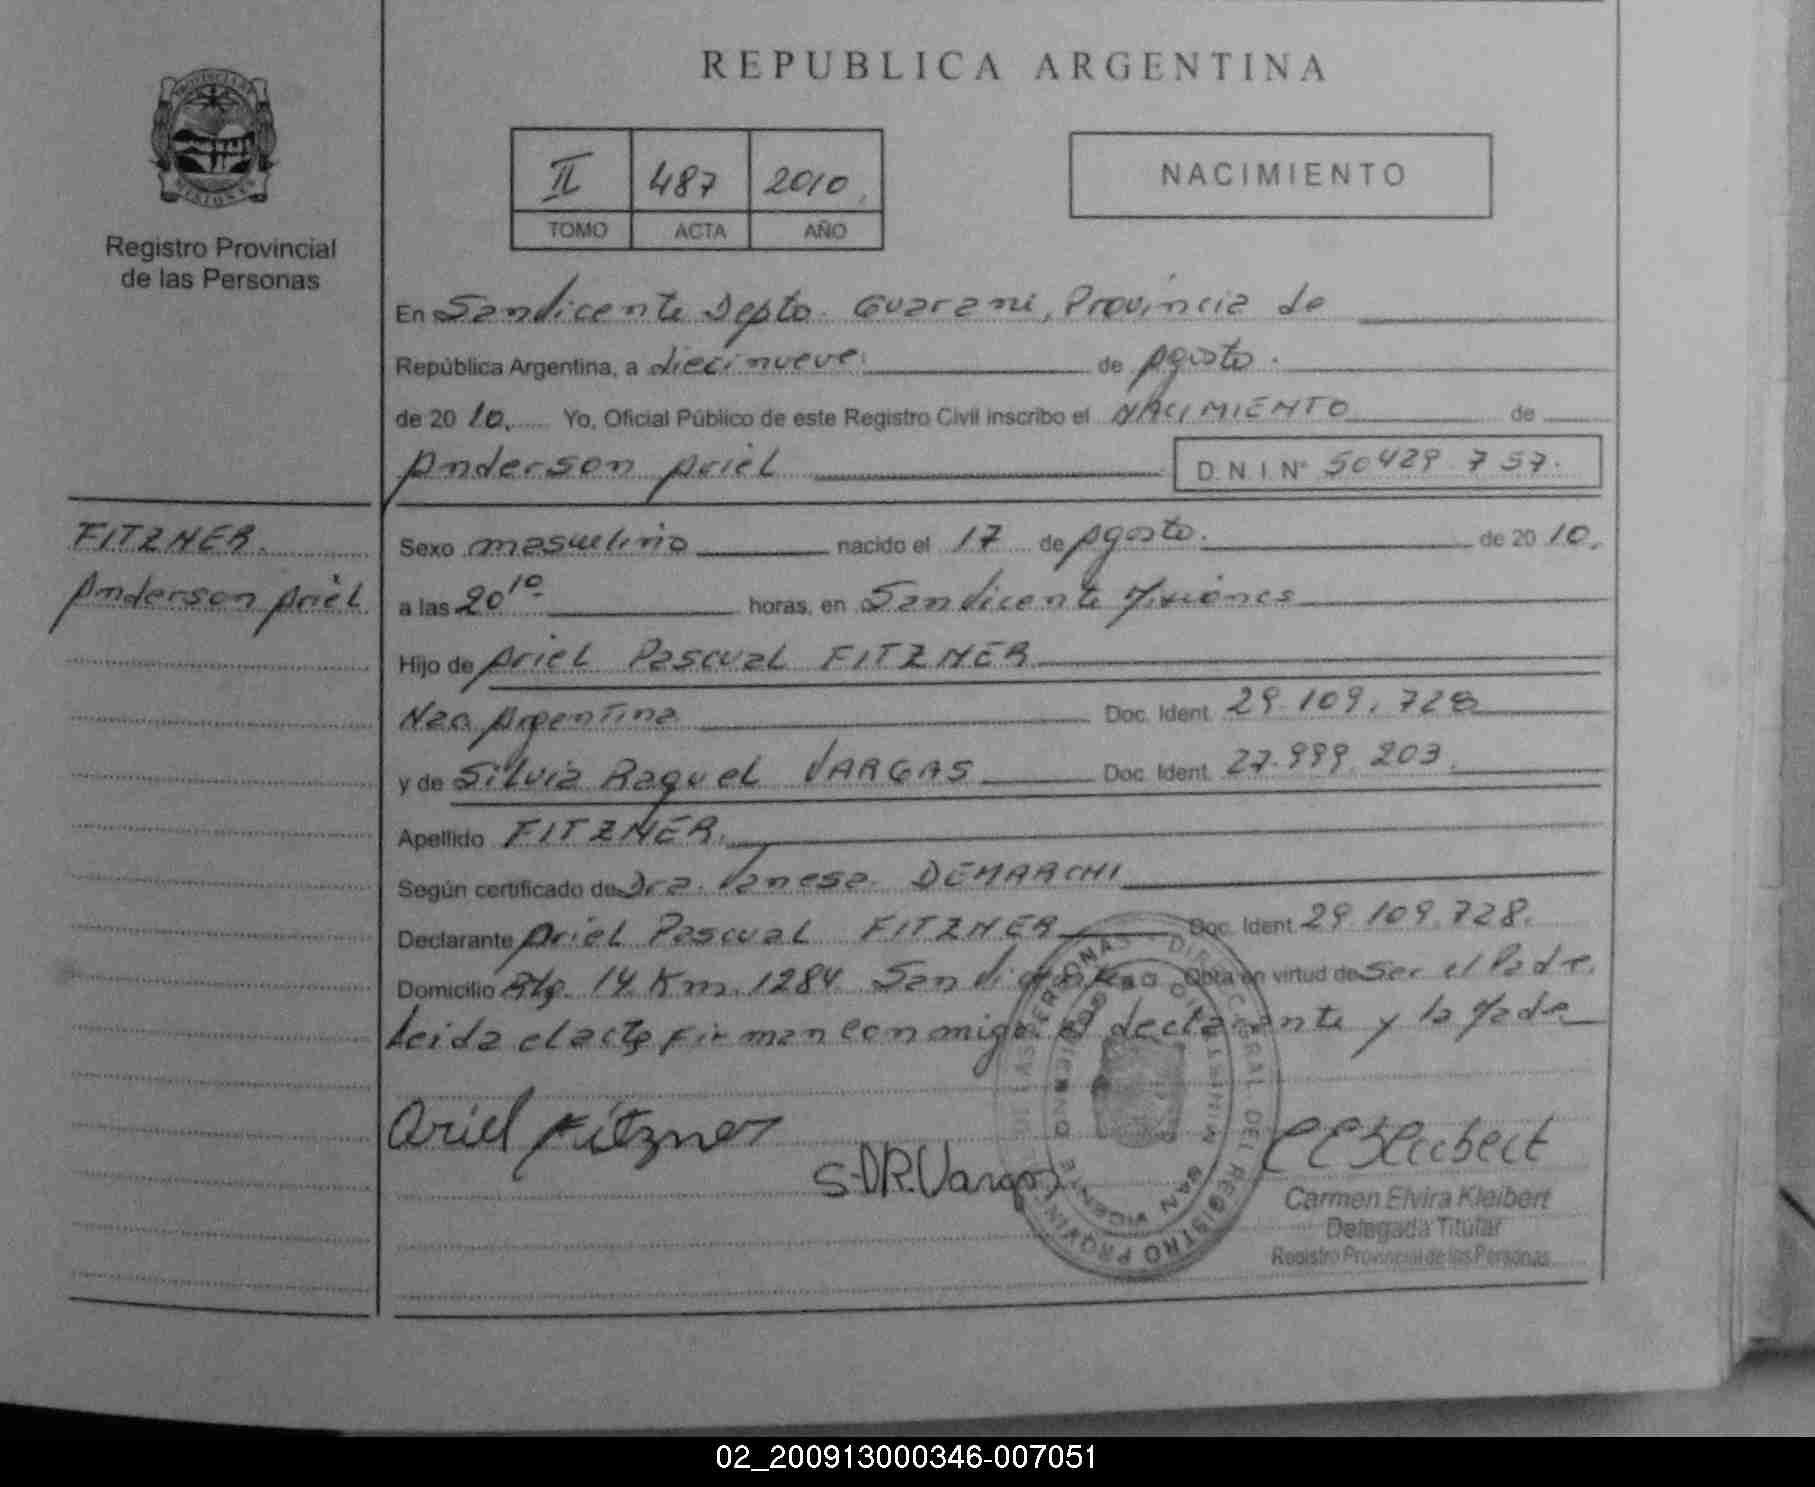 REPUBLICA ARGENTINA
Registro Provincial
de las Personas
II 487 2010
TOMO ACTA AÑO
NACIMIENTO
En Sanvicente Depto. Guarani, Provincia de
República Argentina, a diecinueve de Agosto.
de 20 10. Yo, Oficial Público de este Registro Civil inscribo el NACIMIENTO de
Anderson Ariel D.N.I. Nº 50429.757.
FITZNER.
Anderson Ariel
Sexo masculino nacido el 17 de Agosto. de 20 10.
a las 20 10 horas, en Sanvicente Misiones
Hijo de Ariel Pascual FITZNER
Nac. Argentina Doc. Ident. 29.109.728
y de Silvia Raquel VARGAS Doc. Ident. 27.999.203.
Apellido FITZNER.
Según certificado de Dra. Vanesa DEMARCHI
Declarante Ariel Pascual FITZNER Doc. Ident. 29.109.728.
Domicilio Rta. 14 Km. 1284 Obra en virtud de Ser el Padre.
Leida el acta firman conmigo el declarante y la Madre
Ariel Fitzner
S.R.Vargas
Carmen Elvira Kleibert
Delegada Titular
Registro Provincial de las Personas
02_200913000346-007051